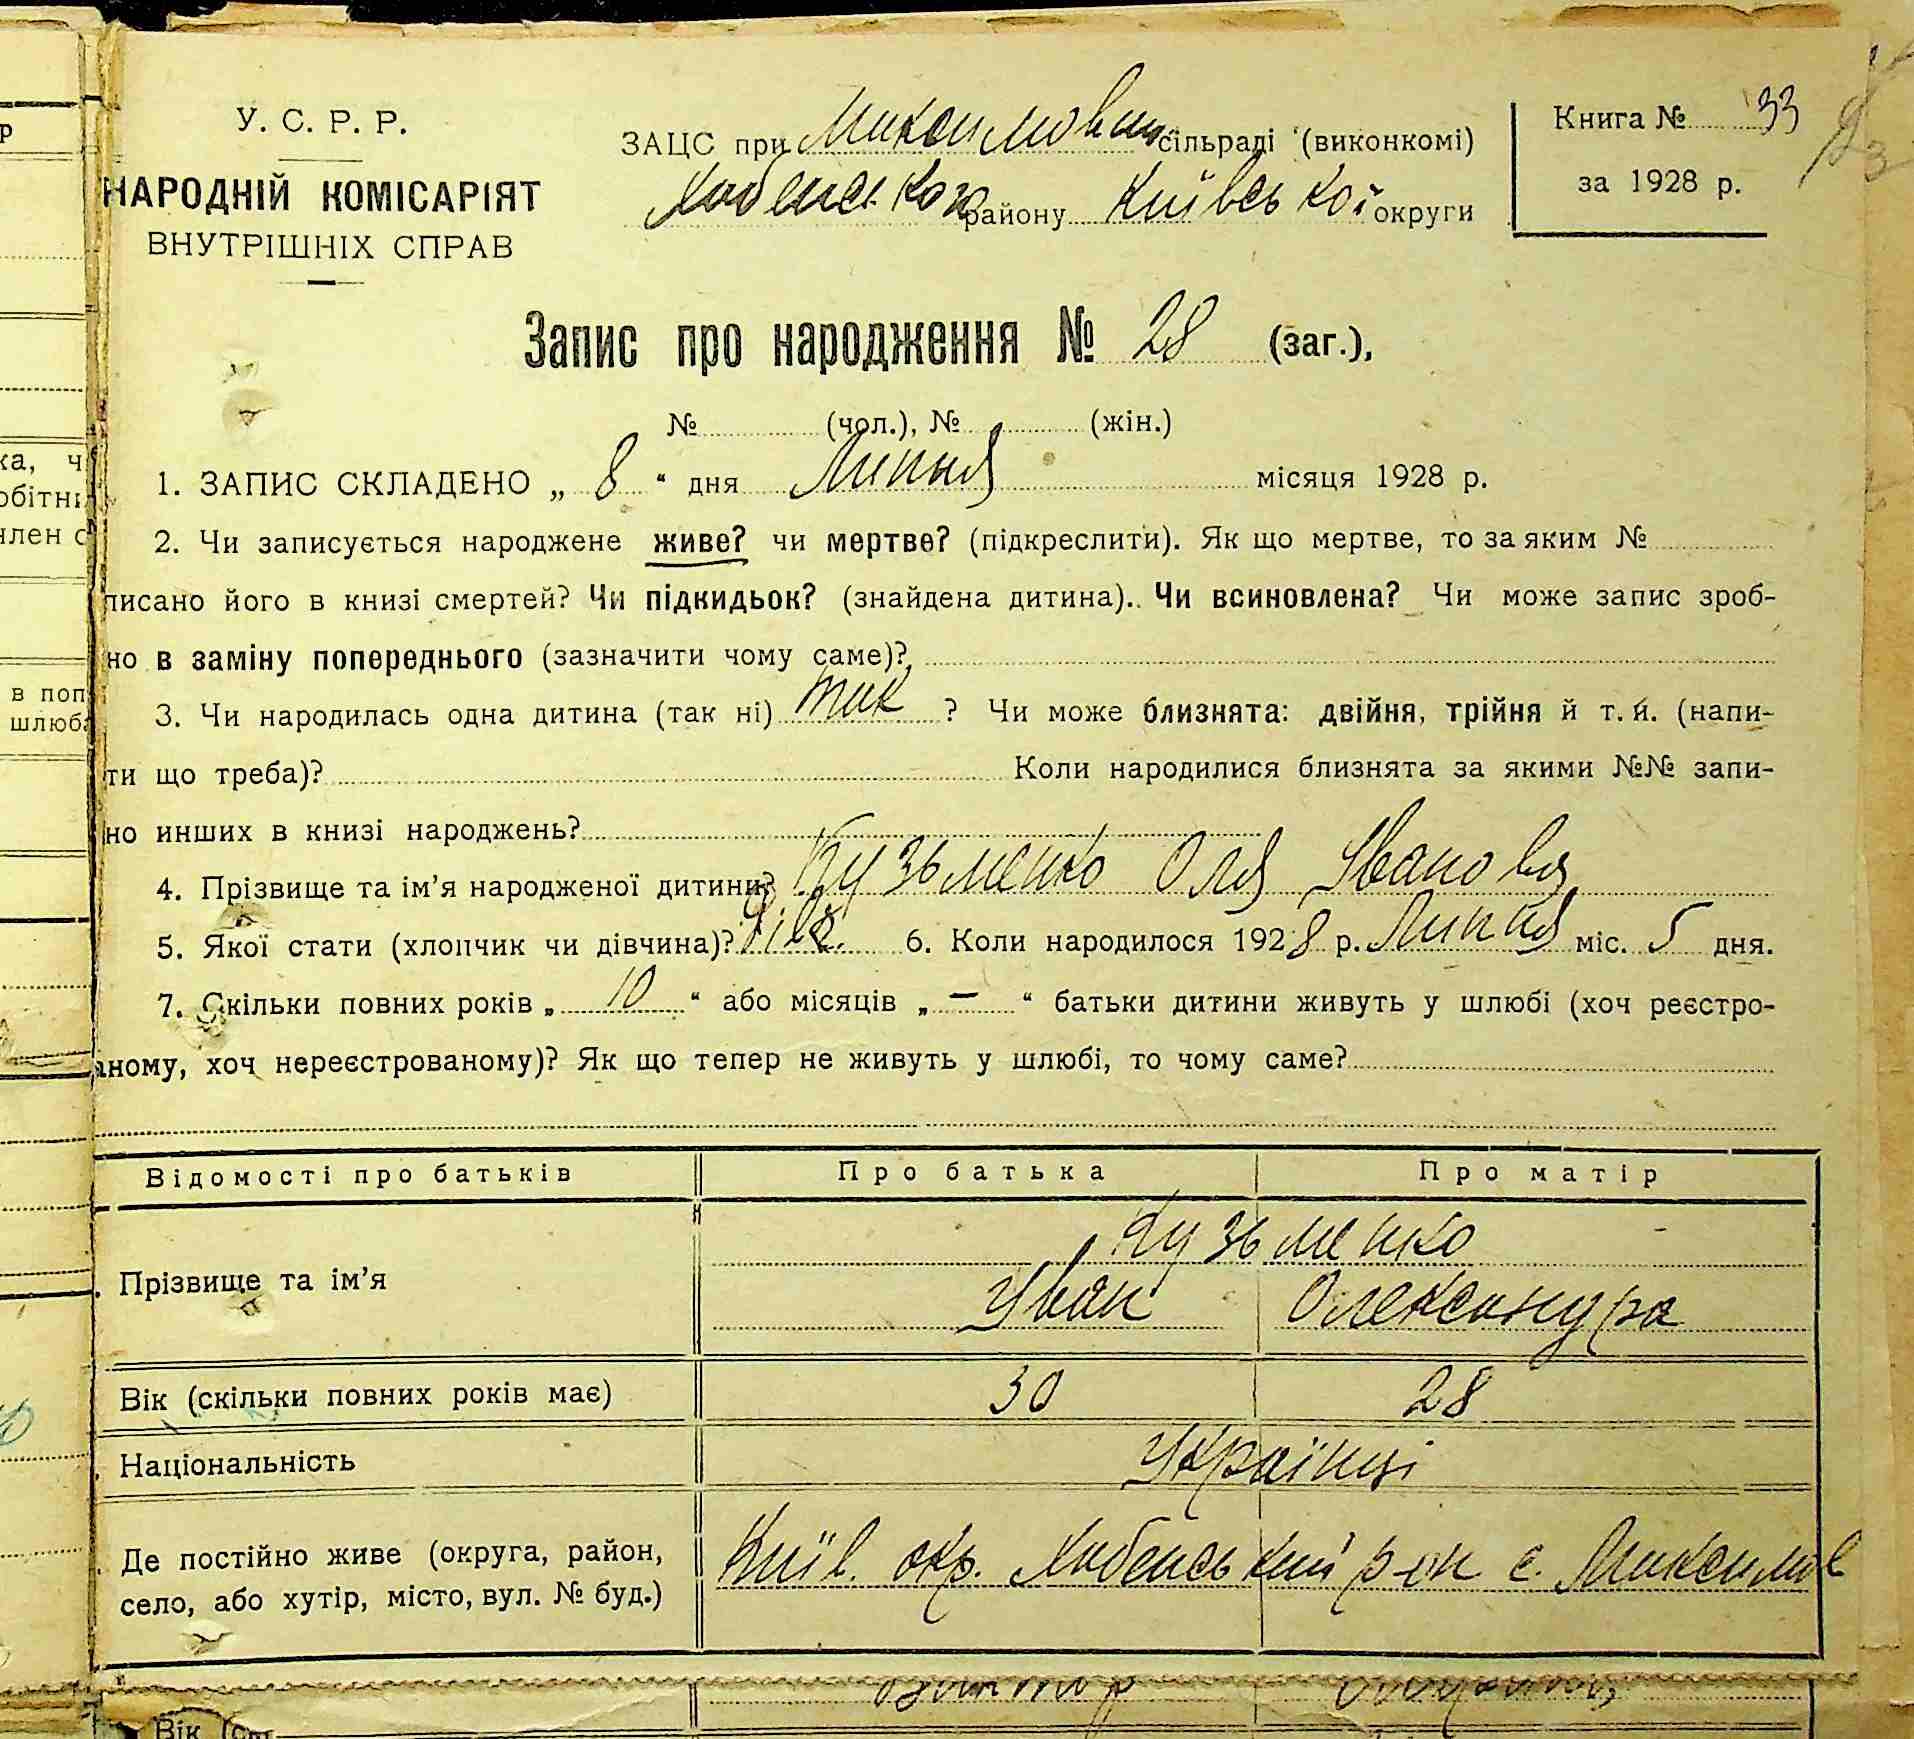 У. С. Р. Р.
НАРОДНІЙ КОМІСАРІЯТ
ВНУТРІШНІХ СПРАВ
ЗАЦС при Максимович сільраді (виконкомі)
Хабенського району Київської округи
Книга № 33
за 1928 р.
Запис про народження № 28 (заг.),
№ (чол.), № (жін.)
1. ЗАПИС СКЛАДЕНО „ 8 “ дня Липня місяця 1928 р.
2. Чи записується народжене живе? чи мертве? (підкреслити). Як що мертве, то за яким №
писано його в книзі смертей? Чи підкидьок? (знайдена дитина). Чи всиновлена? Чи може запис зроб-
но в заміну попереднього (зазначити чому саме)?
3. Чи народилась одна дитина (так ні) так ? Чи може близнята: двійня, трійня й т. й. (напи-
ти що треба)? Коли народилися близнята за якими №№ запи-
но инших в книзі народжень?
4. Прізвище та ім’я народженої дитини? Кузьменко Оля Івановя
5. Якої стати (хлопчик чи дівчина)? Дівч. 6. Коли народилося 1928 р. Липня міс. 5 дня.
7. Скільки повних років „ 10 “ або місяців „ — “ батьки дитини живуть у шлюбі (хоч реєстро-
аному, хоч нереєстрованому)? Як що тепер не живуть у шлюбі, то чому саме?
Відомості про батьків Про батька Про матір
Прізвище та ім’я Кузьменко
Іван Олександра
Вік (скільки повних років має) 30 28
Національність Українці
Де постійно живе (округа, район,
село, або хутір, місто, вул. № буд.) Київ. окр. Хабенський р-он с. Максимов
ка, ч
обітни
член с
в поп
шлюб
Вік (с